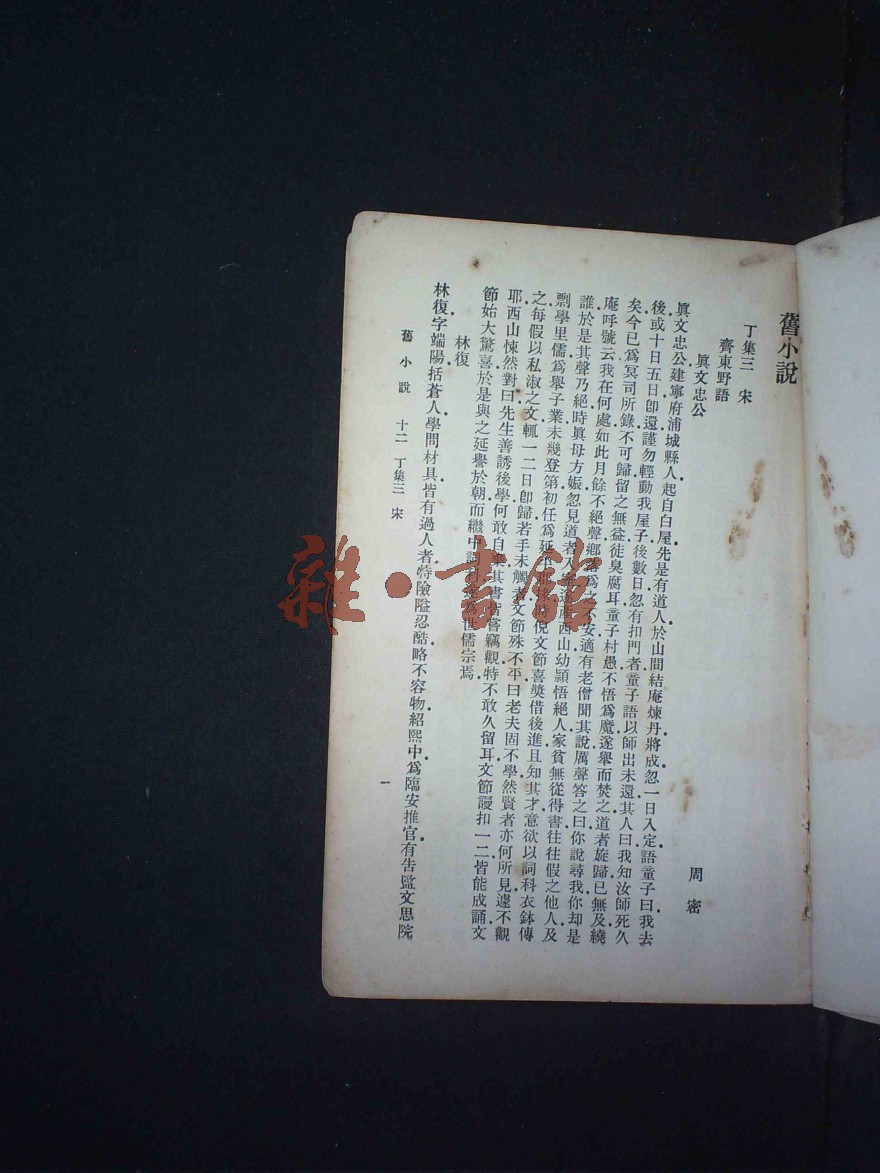 舊小說
丁集三　宋
齊東野語
周密
眞文忠公
眞文忠公建寧府浦城縣人起自白屋先是有道人於山間結庵煉丹將成忽一日入定語童子曰我去
後或十日五日卽還謹勿輕動我屋子後數日忽有扣門者童子語以師出未還其人曰我知汝師死久
矣今已爲冥司所錄不可歸留之無益徒臭腐耳童子村愚不悟爲魔遂舉而焚之道者旋歸已無及繞
庵呼號云我在何處如此月餘不絕聲鄉落爲之不安適有老僧聞其說厲聲答之曰你說尋我你却是
誰於是其聲乃絕時眞母方娠忽見道者入室遂產西山幼穎悟絕人家貧無從得書往往假之他人及
剽學里儒爲舉子業未幾登第初任爲延平郡倪文節喜獎借後進且知其才意欲以詞科衣鉢傳
之每假以私淑之文輒一二日卽歸若手未觸者文節殊不平曰老夫固不學然賢者亦何所見遽不觀
耶西山悚然對曰先生善誘後學何敢自棄其書皆嘗竊觀特不敢久留耳文節謾扣一二皆能成誦文
節始大驚喜於是與之延譽於朝而繼中詞科遂爲世儒宗焉
林復
林復字端陽括蒼人學問材具皆有過人者特險隘忍酷略不容物紹熙中爲臨安推官有告監文思院
舊小說　十二　丁集三　宋
一
雜·書館